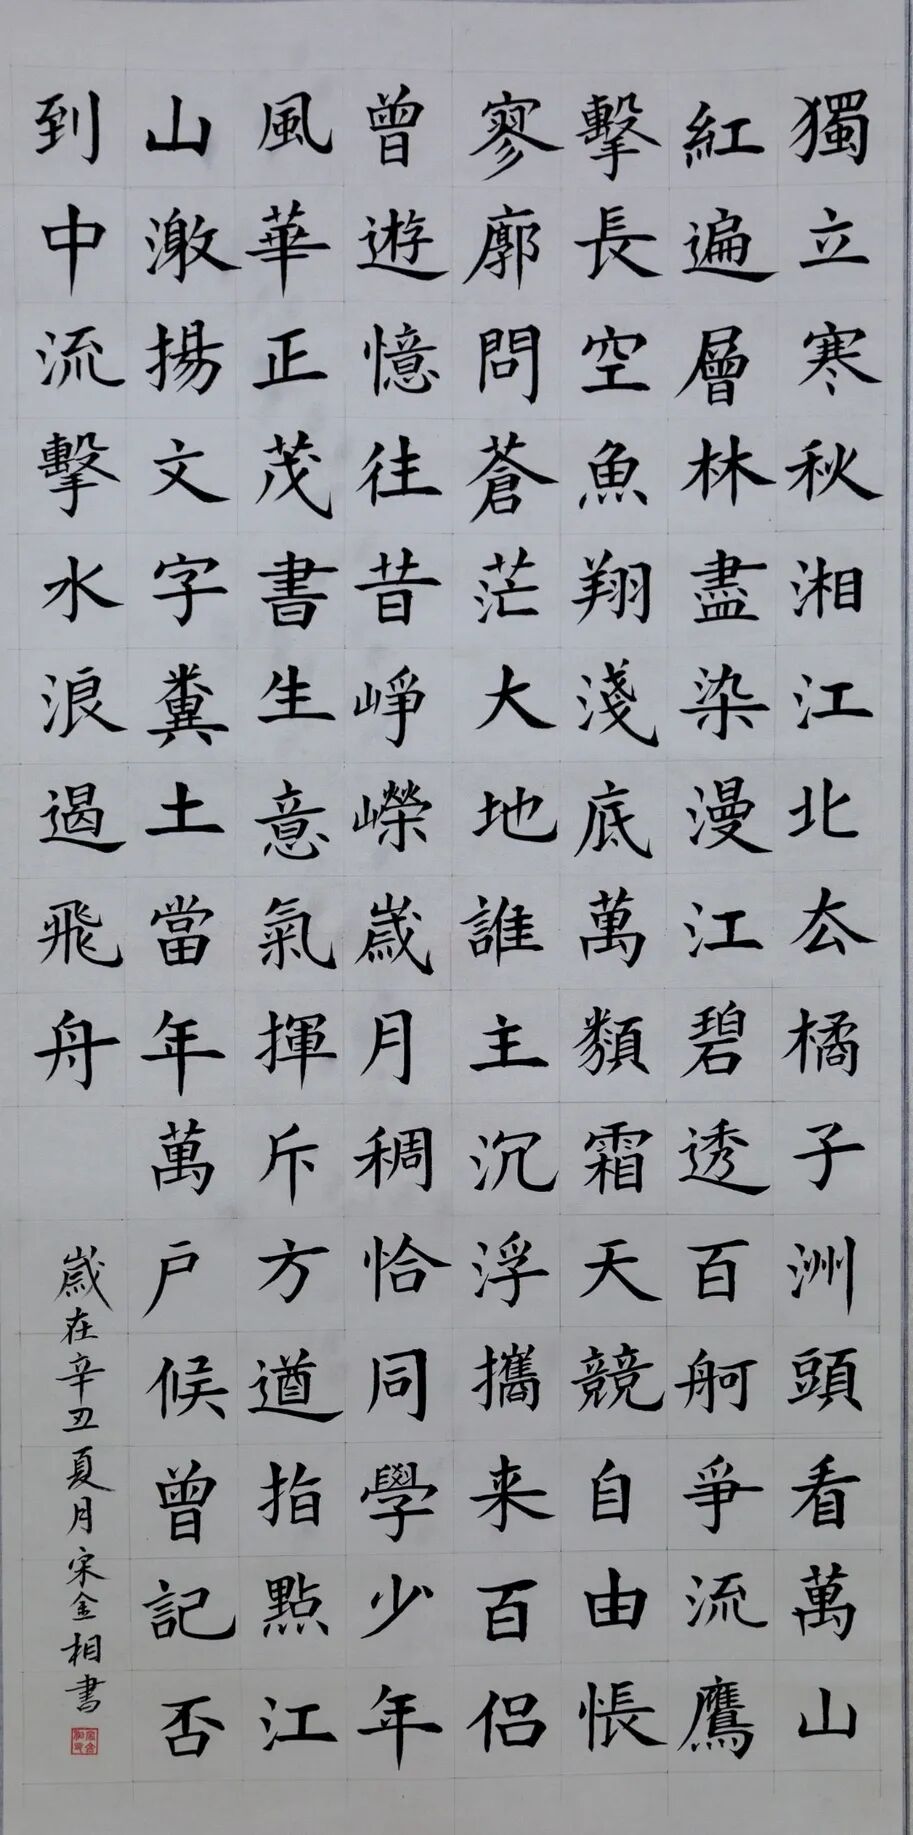 獨立寒秋湘江北厺橘子洲頭看萬山
紅遍層林盡染漫江碧透百舸爭流鷹
擊長空魚翔淺底萬類霜天競自由悵
寥廓問蒼茫大地誰主沉浮攜来百侣
曾遊憶往昔崢嶸歲月稠恰同學少年
風華正茂書生意氣揮斥方遒指點江
山激揚文字糞土當年萬户候曾記否
到中流擊水浪遏飛舟
歲在辛丑夏月宋金相書